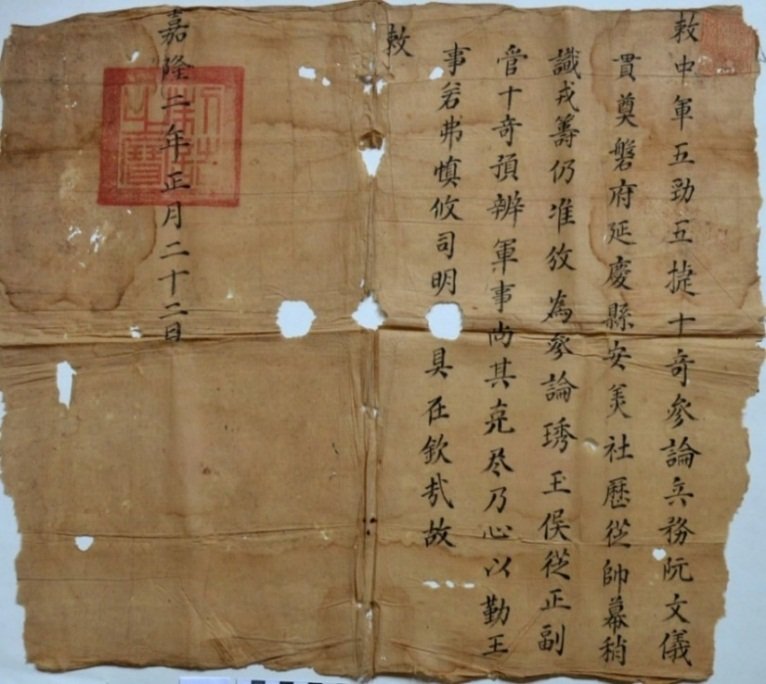 敕中軍五勁五捷十奇參論兵務阮文儀
貫奠磐府延慶縣安美社歷從帥幕稍
識戎籌仍准攽為參論琇玉侯從正副
管十奇預辦軍事尚其克尽乃心以勤王
事若弗慎攸司明具在欽哉故
敕
嘉隆二年正月二十二日